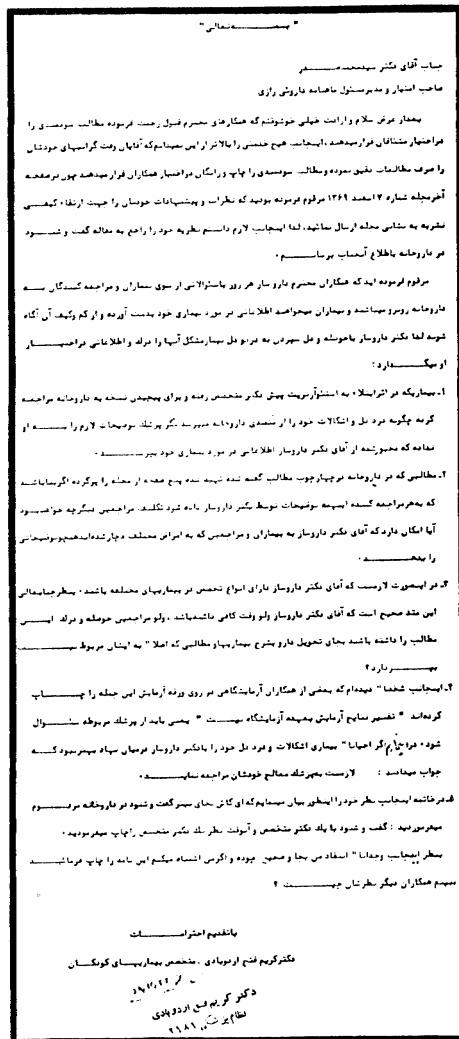 " بسمه تعالی "
جناب آقای دکتر سیدمحمد صدر
صاحب امتیاز و مدیر مسئول ماهنامه داروئی رازی
بعداز عرض سلام و ارادت خیلی خوشوقتم که همکارهای محترم قبول زحمت فرموده مطالب سودمندی را
در اختیار مشتاقان قرار میدهند ، اینجانب هیچ خدمتی را بالاتر از این نمیدانم که آقایان وقت گرانبهای خودشان
را صرف مطالعات دقیق نموده و مطالب سودمندی را چاپ و رایگان در اختیار همکاران قرار میدهند چون در صفحه
آخر مجله شماره ۲ اسفند ۱۳۶۹ مرقوم فرموده بودید که نظرات و پیشنهادات خودمان را جهت ارتقاء کیفی
نشریه به نشانی مجله ارسال نمائید ، لذا اینجانب لازم دانستم نظریه خود را راجع به مقاله گفت و شنود
در داروخانه باطلاع آنجناب برسانم .
مرقوم فرموده اید که همکاران محترم داروساز هر روز با سئوالاتی از سوی بیماران و مراجعه کنندگان به
داروخانه روبرو میباشند و بیماران میخواهند اطلاعاتی در مورد بیماری خود بدست آورده و از کم و کیف آن آگاه
شوند لذا دکتر داروساز باحوصله و دل سپردن به درد دل بیمار مشکل آنها را درک و اطلاعاتی در اختیار
او میگذارد :
۱ـ بیماریکه در اثر ابتلاء به استئوآرتریت پیش دکتر متخصص رفته و برای پیچیدن نسخه به داروخانه مراجعه
کرده چگونه درد دل و اشکالات خود را از متصدی داروخانه میپرسد مگر پزشک توضیحات لازم را به او
نداده که مجبور شده از آقای دکتر داروساز اطلاعاتی در مورد بیماری خود بپرسد .
۲ـ مطالبی که در داروخانه در چهارچوب مطالب گفته شده نهیه شده پنج صفحه از مجله را پر کرده اگر بنا باشد
که به هر مراجعه کننده اینهمه توضیحات توسط دکتر داروساز داده شود تکلیف مراجعین دیگر چه خواهد بود
آیا امکان دارد که آقای دکتر داروساز به بیماران و مراجعین که به امراض مختلف دچار شده اند همچو توضیحاتی
را بدهد .
۳ـ در اینصورت لازمست که آقای دکتر داروساز دارای انواع تخصص در بیماریهای مختلفه باشد ، بنظر جنابعالی
این عقد صحیح است که آقای دکتر داروساز ولو وقت کافی داشته باشد ، ولو مراجعین حوصله و درک این
مطالب را داشته باشند بجای تحویل دارو بشرح بیماریها و مطالبی که اصلا" به ایشان مربوط نیست
بپردازد ؟
۴ـ اینجانب شخصا" دیده ام که بعضی از همکاران آزمایشگاهی در روی ورقه آزمایش این جمله را چاپ
کرده اند " تفسیر نتایج آزمایش بعهده آزمایشگاه نیست " یعنی باید از پزشک مربوطه سئوال
شود ، اگر احیانا" بیماری اشکالات و درد دل خود را با دکتر داروساز در میان نهاد بهتر نبود که
جواب میدادند : لازمست به پزشک معالج خودشان مراجعه نمایند .
۵ـ در خاتمه اینجانب نظر خود را اینطور بیان مینمایم که ای کاش بجای تیتر گفت و شنود در داروخانه مرقوم
میفرمودید : گفت و شنود با یک دکتر متخصص و آنوقت نظر یک دکتر متخصص را چاپ میفرمودید .
بنظر اینجانب وجدانا" انتقاد من بجا و صحیح بوده و اگر من اشتباه میکنم این نامه را چاپ فرمائید
ببینیم همکاران دیگر نظرشان چیست ؟
با تقدیم احترامات
دکتر کریم فتح اردوبادی ـ متخصص بیماریهای کودکان
دکتر کریم فتح اردوبادی
نظام پزشکی ۲۱۸۱